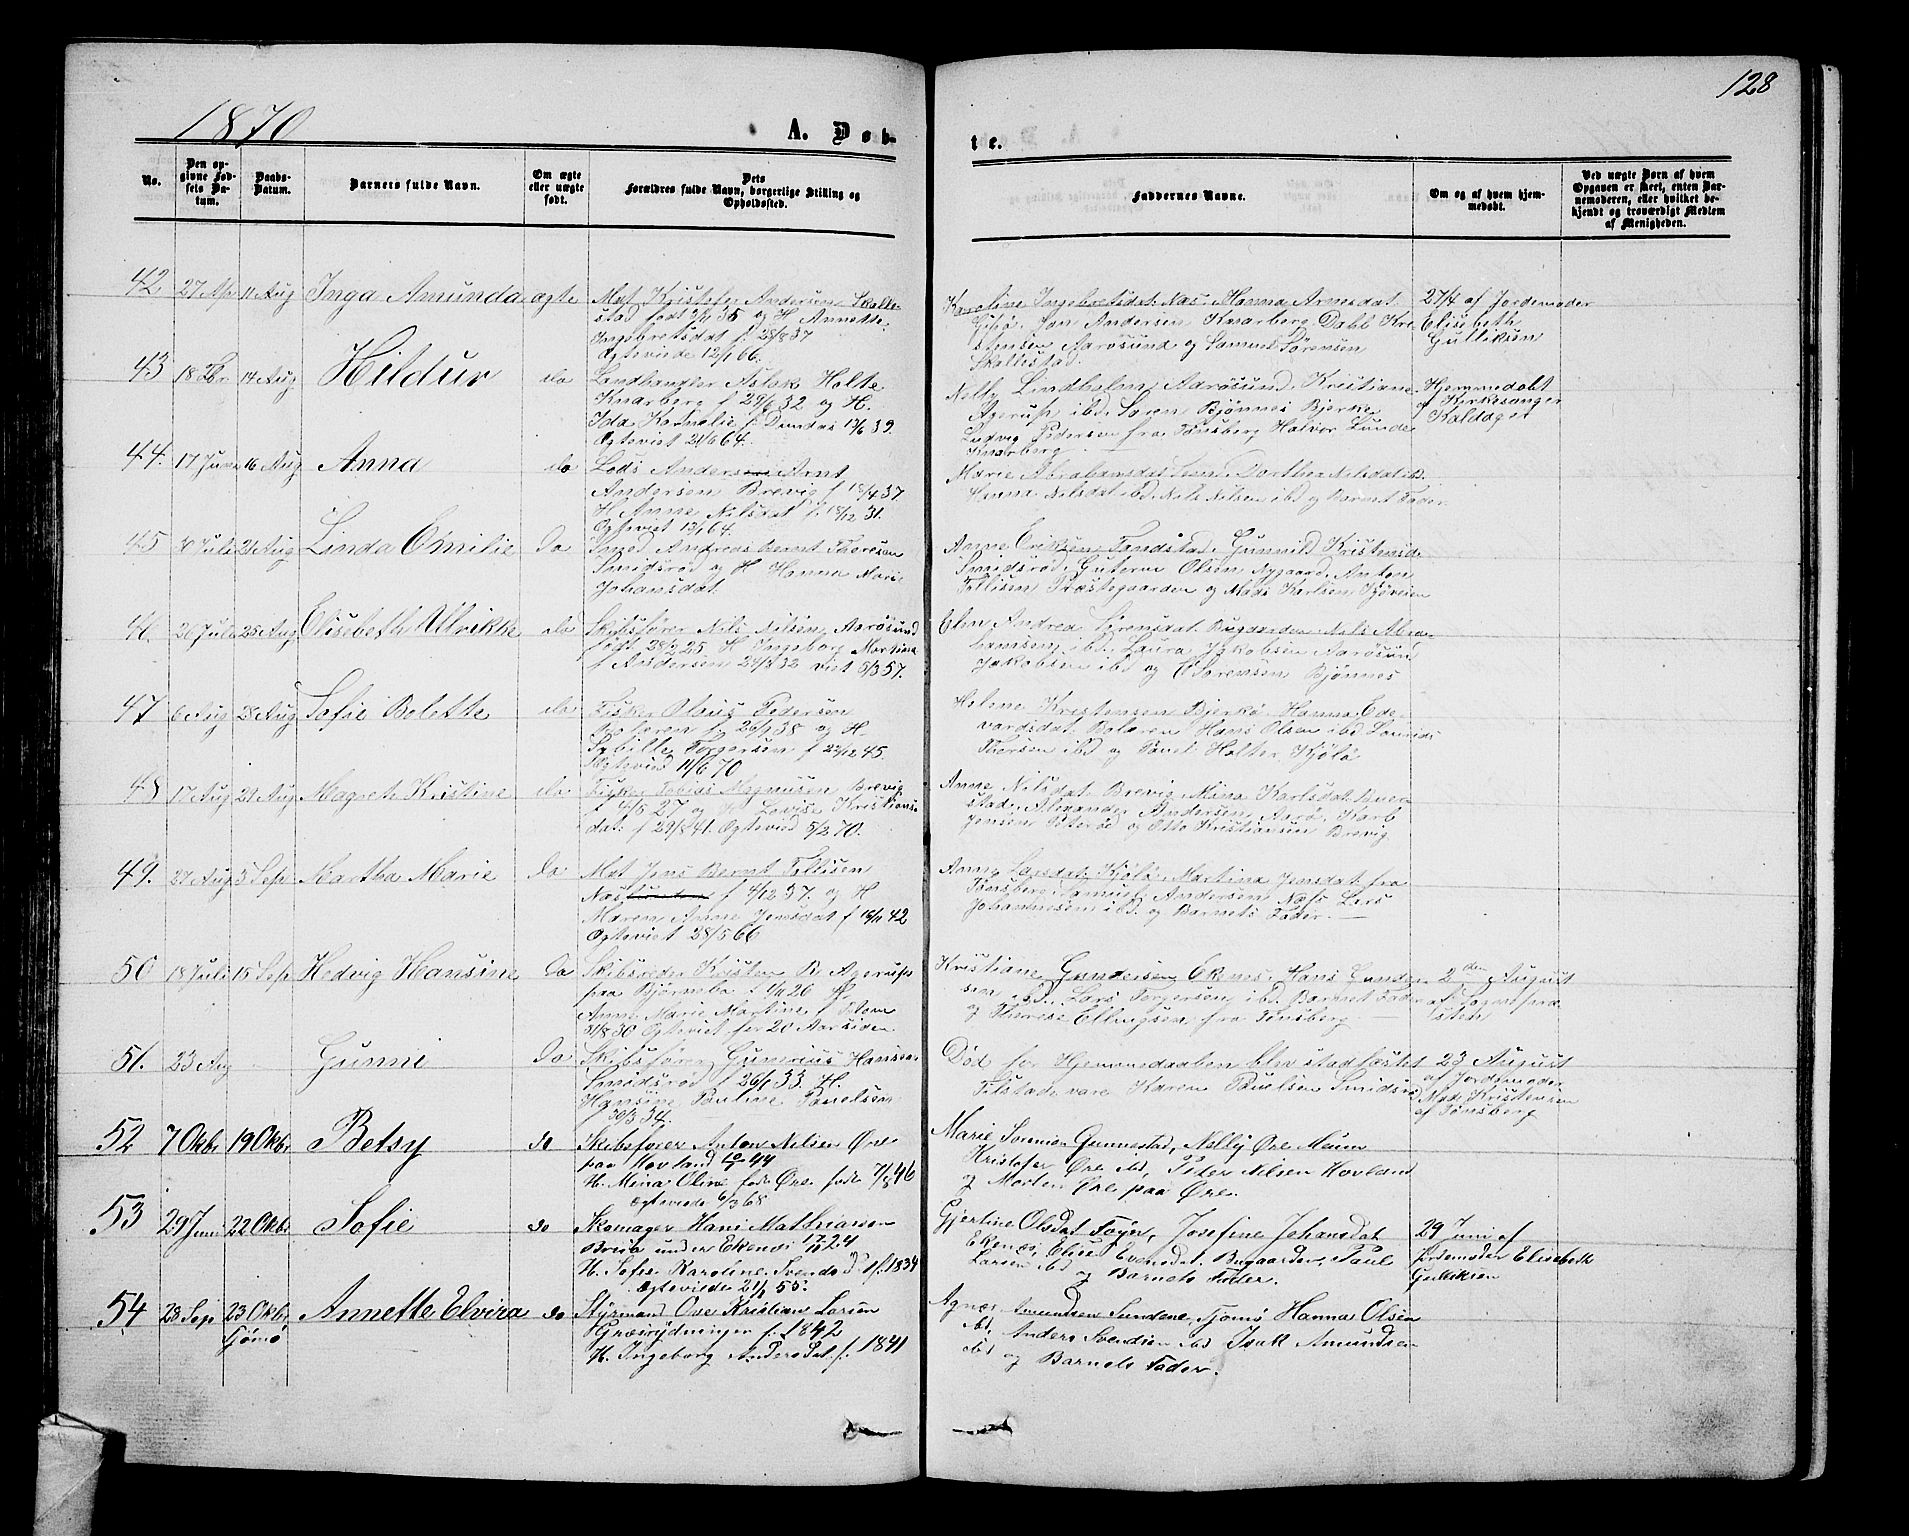 1870
128
A. Døb-
te.
No.
Den op-
givne Fød-
sels Da-
tum.
Daabs-
Datum.
Barnets fulde Navn.
Om ægte
eller uægte
født.
Dets
Forældres fulde Navn, borgerlige Stilling og
Opholdssted.
Faddernes Navne.
Om og af hvem hjem-
medøbt.
Ved uægte Børn af hvem
Opgaven er skeet, enten Bar-
nemoderen, eller hvilket be-
kjendt og troværdigt Medlem
af Menigheden.
42 27 Apr 11 Aug Inga Amunda ægte
Mat Kristofer Andersen Skalle-
stad født 35 og H Annette
Ingebretsdat f. 28/8 37
Ægteviede 12/1 66.
Karoline Ingebretsdat Næs. Hanna Arnesdat
Jan Andersen Knarberg Dahl Kri
stensen Aarøsund og Samuel Sørensen
Skallestad
27/4 af Jordemoder
Elisebeth
Gulliksen
43 18 14 Aug Hildur do
Landhandler Aslak Holte
Knarberg f 29/6 32 og H.
Ida Kornelie f. Dundas 13/6 39.
Ægteviet 21/6 64.
Nelly Lindholm Aarøsund. Kristiane
Agerup ibd. Søren Bjønnes Bjerke
Ludvig Pedersen fra Tønsberg Halvor Lunde
Knarberg
Hjemmedøbt
af Kirkesanger
Kaldager
44. 17 Juni 16 Aug Anna do
Lods Anders Arnt
Andersen Brevig f 18/4 37
H Anne Nilsdat f. 18/12 31.
Ægteviet 13/1 64.
Marie Abrahamsdat Dorthea Nilsdat ibd
Nilsdat ibd. Nils Nilsen ibd og Barnet Fader
45 Juli 21 Aug Linda Emilie do
Andreas Bernt Thoresen
Smidsrød og H Hanna Marie
Johansdat.
Anne Eriksen Tandstad. Gunnild Kristensd
Smidsrød, Olsen Nygaard. Anton
Tollisen Præstegaarden og Mads Karlsen Kjøveien
46. 20 Juli 25 Aug Elisebeth Ulrikke do
Skibsfører Nils Nilsen Aarøsund
født 28/2 25 H Ingeborg Martina
f Andersen 29/8 32 viet 5/3 57.
Elen Andrea Sørensdat Bugaarden, Nils Abra-
hamsen ibd. Laura Jakobsen Aarøsun
Jakobsen ibd og C Sørensen Bjønnes
47 6 Aug 28 Aug Sofie Bolette do
Fisker Olaus Pedersen
Bolæren f 26/1 38 og H
Sybille Torgersen f 22/12 45.
Ægteviet 11/6 70
Helene Kristensen Bjerkø. Hanna Ed-
vardsdat Bolæren Hans Olsen ibd
Thorsen ibd og Povel Holter, Kjølø
48 17 Aug 21 Aug Magrete Kristine do
Fisker Tobias Magnusen Brevig
f 4/5 27 og H Lovise Kristians
dat: f 29/8 41. Ægteviet 5/2 70.
Anne Nilsdat Brevig. Mina Karlsdat Buer-
stad. Alexander Andersen Aarø. Karl
Jensen og Otto Kristiansen Brevig
49. 27 Aug 3 Sep Martha Marie do
Mat Jens Bernt Tollisen
Næs f 4/12 37. og H
Maren Anne Jensdat f 18/11 42
Ægteviet 28/5 66
Anne Larsdat Kjølø. Martina Jensdat fra
Tønsberg. Samuel Andersen Næs. Lars
Johannesen ibd. og Barnets Fader.
50 18 Juli 15 Sep Hedvig Hansine do
Skibsreder Kristen B. Agerup
paa Bjørneba f 4/11 26 H.
Anne Marie Martine f
31/8 30 Ægteviet for 20 Aar siden
Kristiane Gundersen Ekenes. Hans Gunder-
sen ibd. Lars Torgersen ibd Barnet Fader
og Therese Ellingsen fra Tønsberg.
2den August
af Sognepræ
sten
51. 23 Aug Gunni do
Skibsfører Gunerius Hansen
Smidsrød f 26/1 33. H.
Hansine Pauline Paulsen
f 30/3 34.
Død før Hjemmedaaben blev stadfæstet
Tilstede vare Karen Paulsen Smidsrø
23 August
af Jordemoder
Mad. Kristensen
af Tønsberg
52 7 Okbr 19 Okbr Betsy do
Skibsfører Anton Nilsen Øre
paa Hovland 44
H. Mina Oline født Øre født 7/8 46
Ægteviede 6/3 68
Marie Sørensen Gunnestad, Nelly Øre Meum
Kristofer Øre ibd, Peder Nilsen Hovland
og Morten Øre paa Øre.
53 29 Juni 22 Okbr Sofie do
Skomager Hans Mathiassen
Breia under Ekenes 17/10 24
H. Sofie Karoline Svendsd. f. 1834
Ægteviede 21/1 55.
Gjertine Olsdat Føyn, Josefine Johansdat
Ekenes, Elise Evensdat. Bugaarden, Paul
Larsen ibd og Barnets Fader.
29 Juni af
Jordemoder Elisebeth
Gulliksen
54 28 Sep 23 Okbr Annette Elvira do
Tjømø
Styrmand Ove Kristian Larsen
Græsrydningen f. 1842
H. Ingeborg Andersdat f. 1841
Agnes Amundsen Sundene, Tjømø Hanna Olsen
ibd. Anders Svendsen ibd Isak Amundsen
ibd og Barnets Fader.